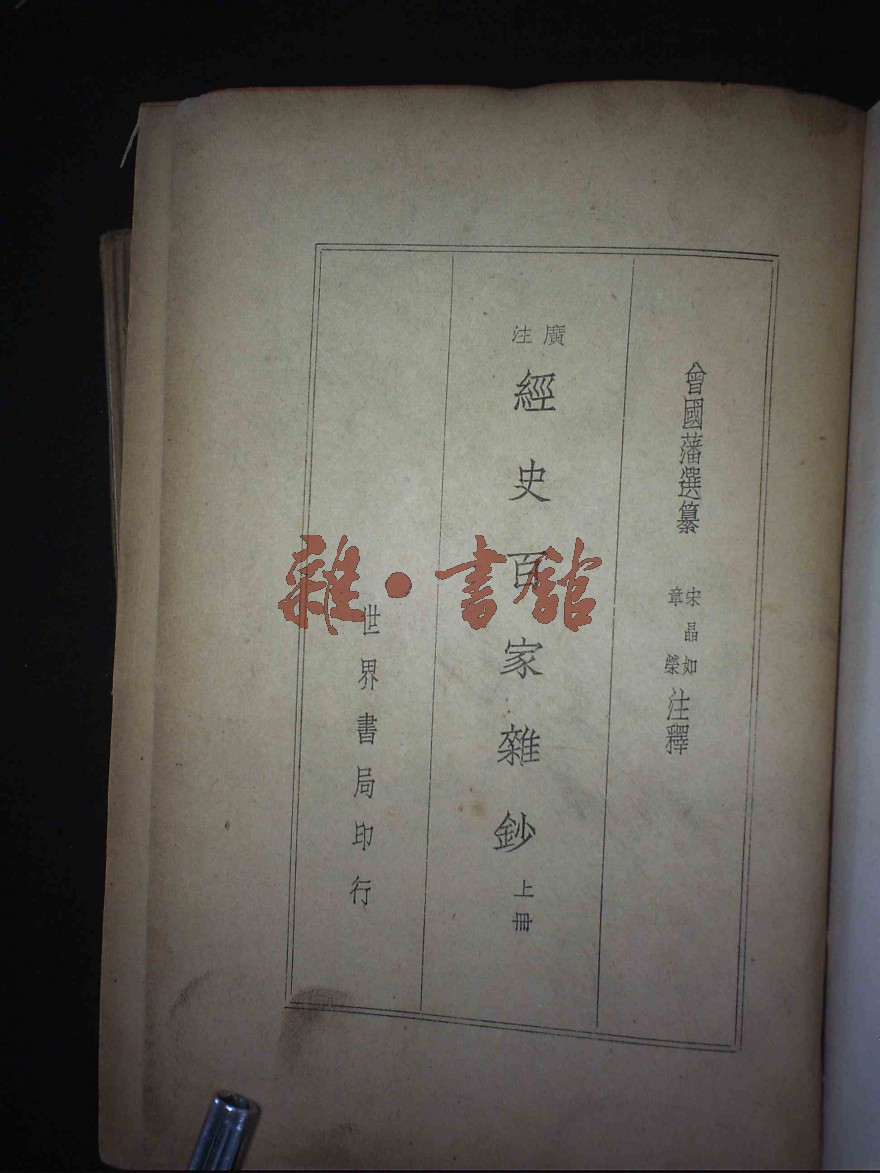 曾國藩選纂
宋晶如
章榮
注釋
廣注
經史百家雜鈔
上冊
世界書局印行
雜·書館